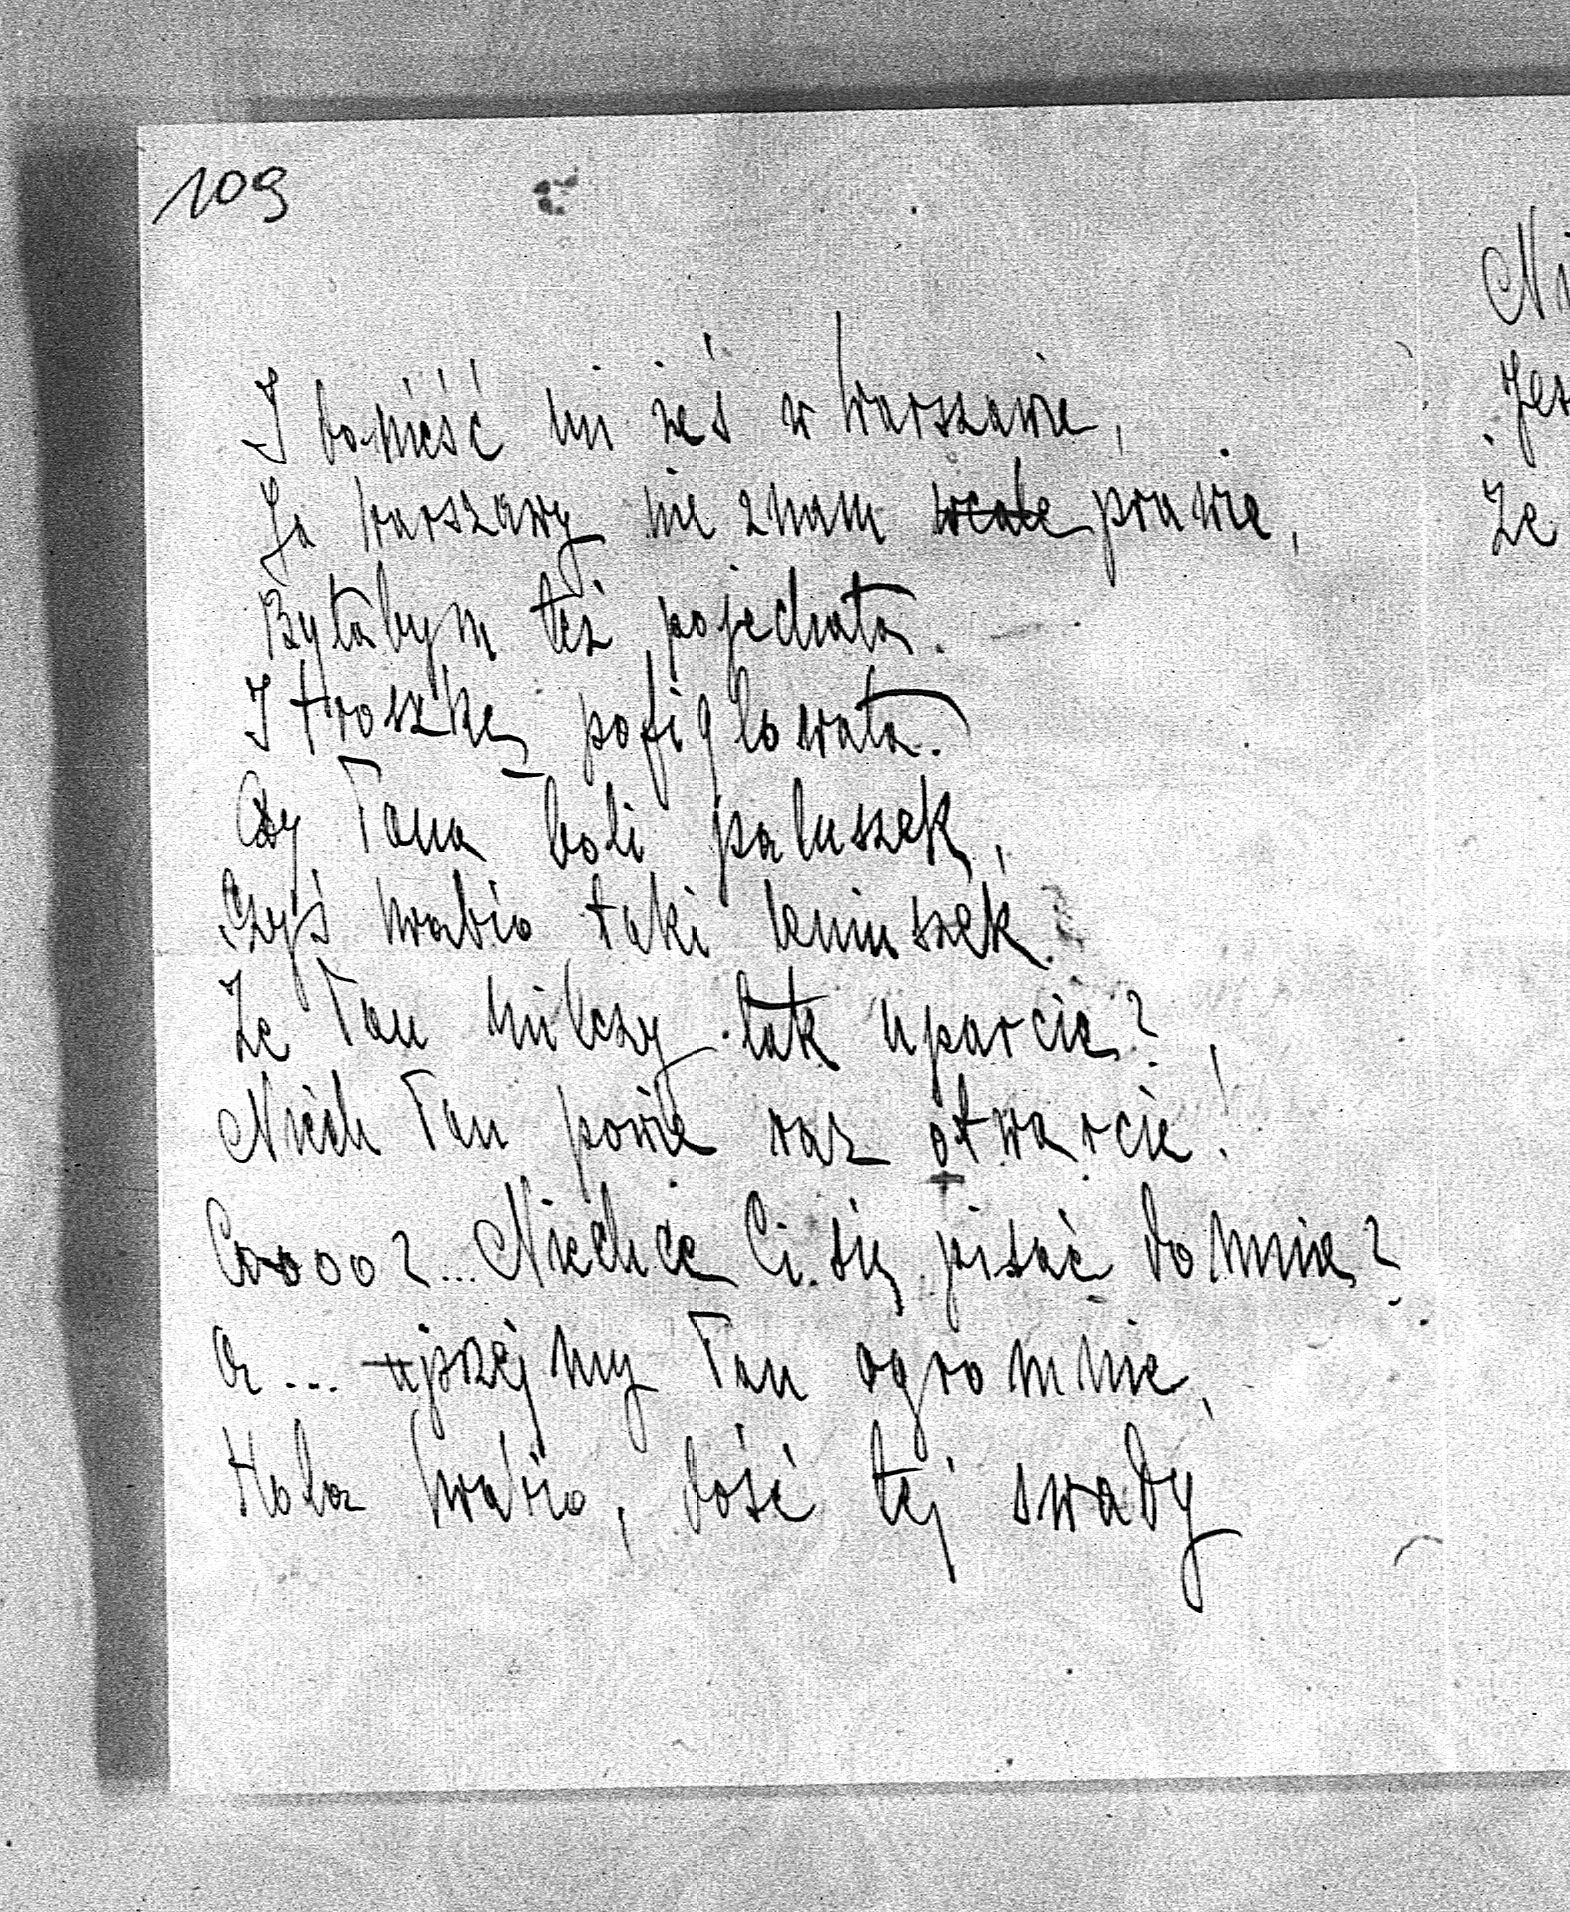 109
I donieść mi żeś w Warszawie,
Ja Warszawy nie znam wcale prawie,
Byłabym też pojechała.
I troszkę pofiglowała.
Czy Pana boli paluszek,
Czyś hrabio taki leniuszek?
Że Pan milczy tak uparcie?
Niech Pan powie raz otwarcie!
Coooo?... Niechce Ci się pisać do mnie?
A... uprzejmy Pan ogromnie,
Hola hrabio, dość tej swady
Ni
Jes
Że